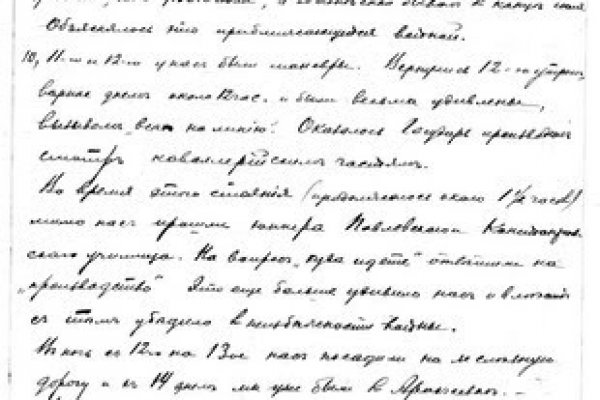 Объяснялось это приближающейся войной.
10, 11-го и 12-го у нас были маневры. Вернулись 12-го утром,
вернее днем около 12 час. и были весьма удивлены,
вызовом „всех на линию“. Оказалось Государь производит
смотр кавалерийским частям.
Во время этого стояния (продолжалось около 1½ часов)
мимо нас прошли юнкера Павловского и Константиновского
училища. На вопрос „куда идете“ ответили на
„производство“ Это еще больше удивило нас и
с тем убедило в неизбежности войны.
В ночь с 12го на 13ое нас посадили на железную
дорогу и 14 днем мы уже были в